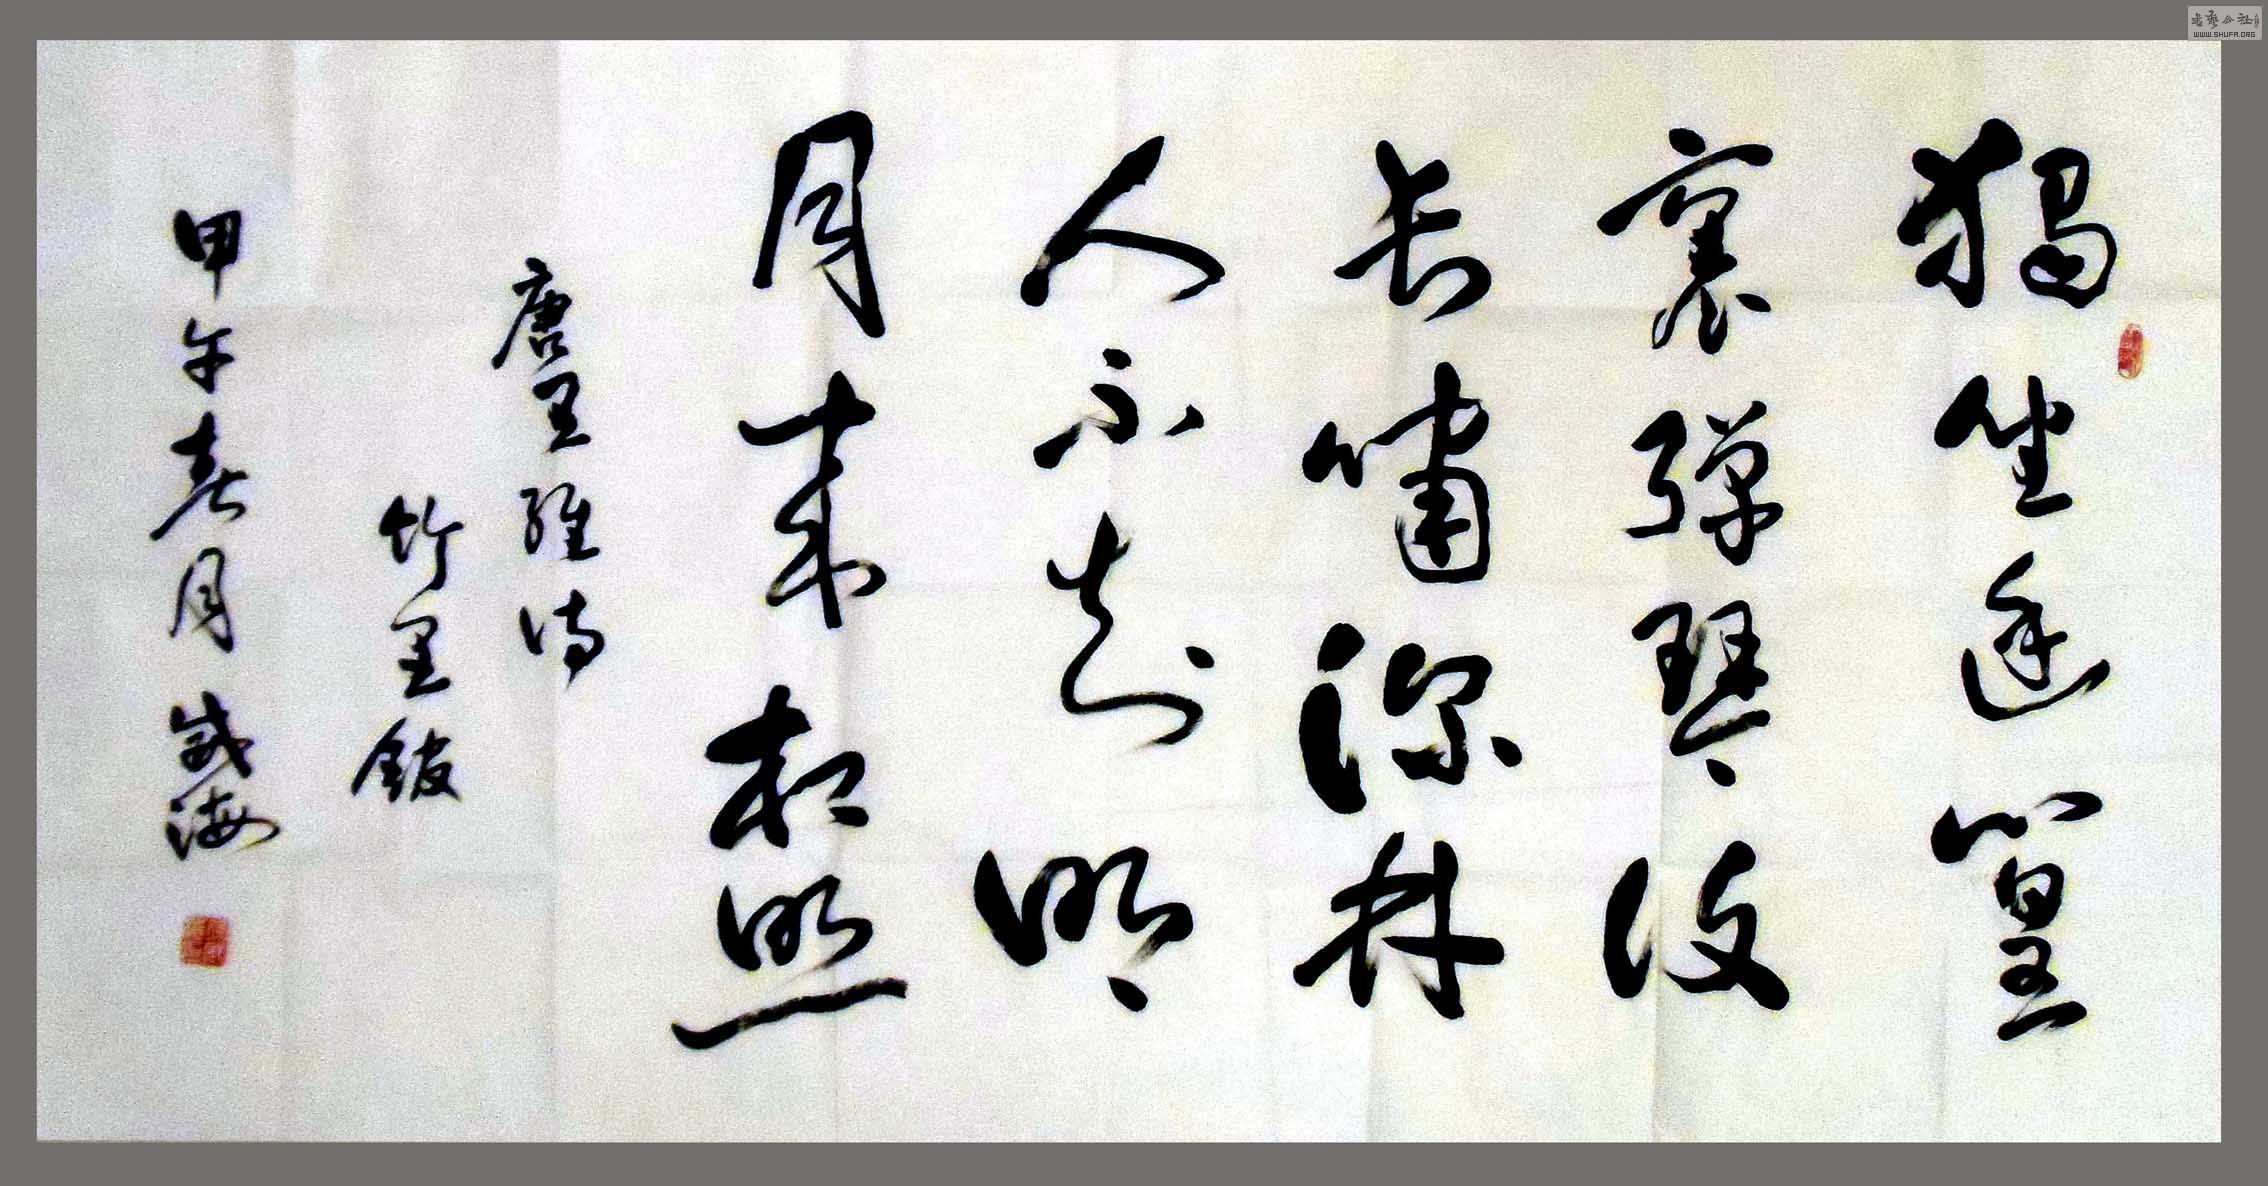 獨坐幽篁
裏彈琴復
長嘯深林
人不知明
月来相照
唐王維詩
竹里館
甲午春月 誠海
書藝公社
WWW.SHUFA.ORG